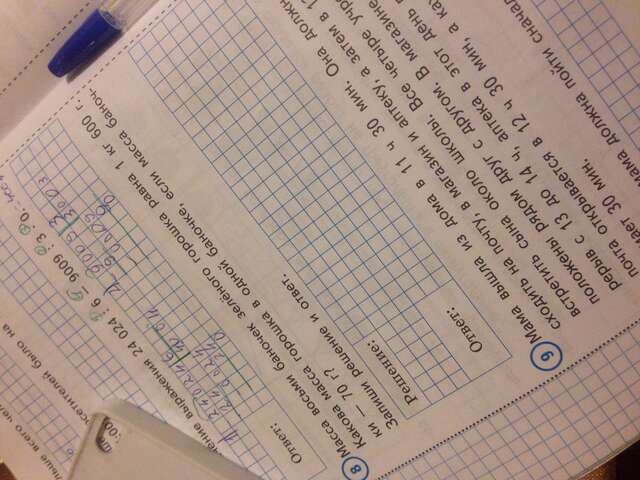 льше всего чел
сетителей было на
ение выражения 24 024 : 6 − 9009 : 3 · 0
1) 24024 6
24
0024
24
0
2) 9009 3
9 3003
Ответ:
8 Масса восьми баночек зелёного горошка равна 1 кг 600 г.
Какова масса горошка в одной баночке, если масса баноч-
ки — 70 г?
Запиши решение и ответ.
Решение:
Ответ:
9 Мама вышла из дома в 11 ч 30 мин. Она должн
сходить на почту, в магазин и аптеку, а затем в 1
встретить сына около школы. Все четыре учре
положены рядом друг с другом. В магазине
рерыв с 13 до 14 ч, аптека в этот день
почта открывается в 12 ч 30 мин, а ка
мает 30 мин.
мама должна пойти сначал